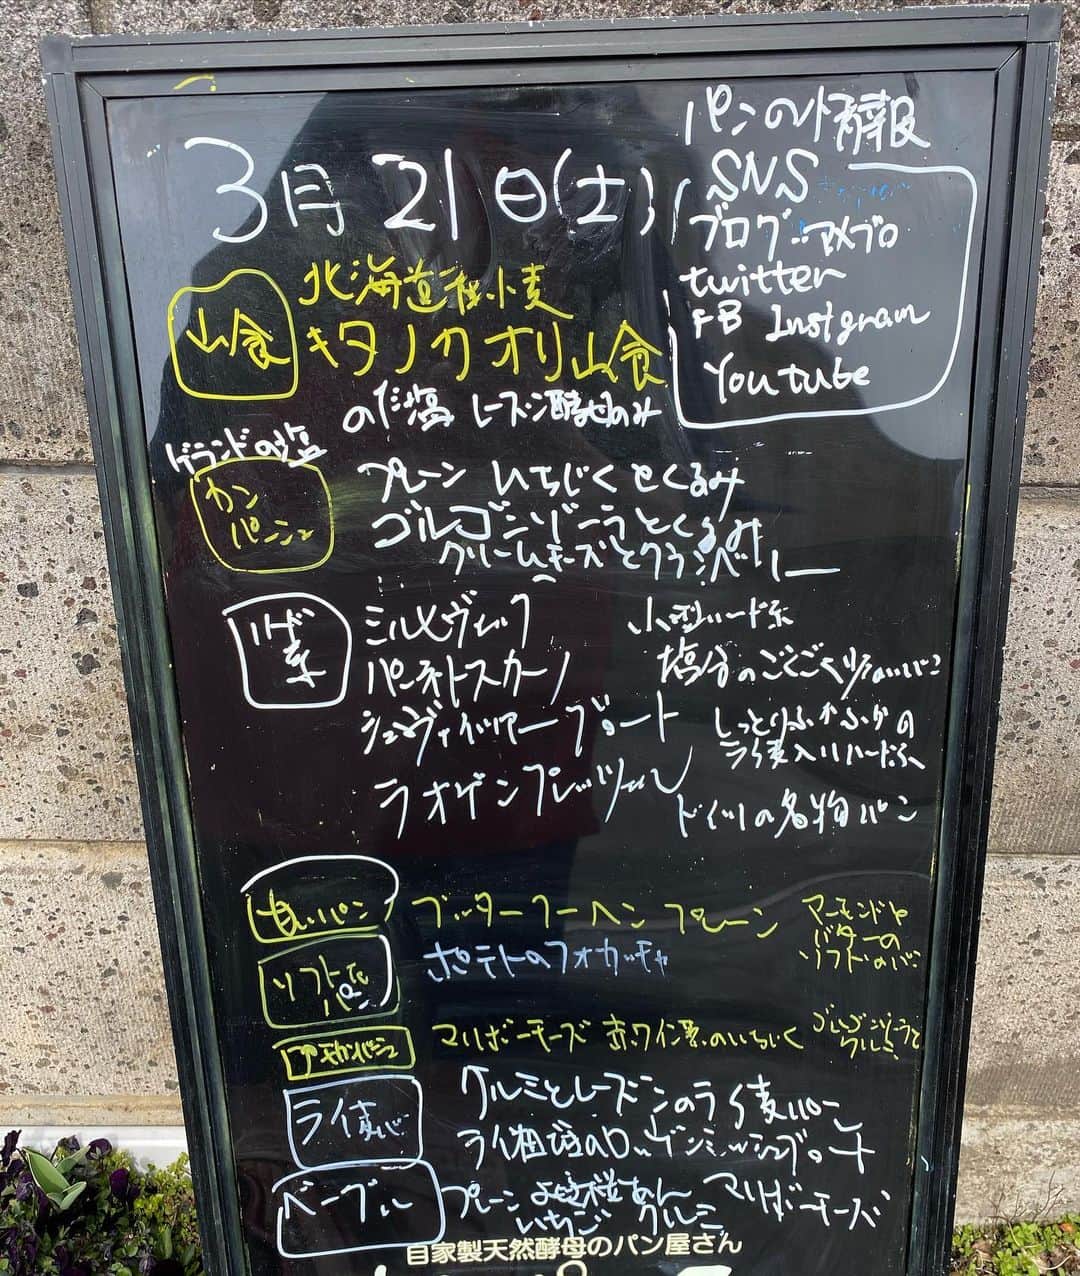 3月21日(土)
パンの情報
SNS
ブログ アメブロ
twitter
FB Instgram
Youtube
山食
北海道産小麦
キタノカオリ山食
のだ塩 レーズン酵母のみ
ゲランドの塩
カン
パーニュ
プレーン いちじくとくるみ
ゴルゴンゾーラとくるみ
クリームチーズとクランベリー
ハード
系
ミルヒヴェック
小型ハード系
パンネトスカーノ
塩分のごくごく少ないパン
シュヴァイツァーブロート
しっとりふかふかの
ライ麦入りハード
ラオゲンプレッツェル
ドイツの名物パン
甘いパン
ブッタークーヘン プレーン
アーモンドや
バターの
ソフトの
ソフトな
パン
ポテトのフォカッチャ
マリボーチーズ 赤ワイン煮のいちじく
ゴルゴンゾーラと
クルミ
ライ麦パン
クルミとレーズンのライ麦パン
ライ麦粗挽の
ベーグル
プレーン よもぎ桜あん マリボーチーズ
いちご クルミ
自家製天然酵母のパン屋さん